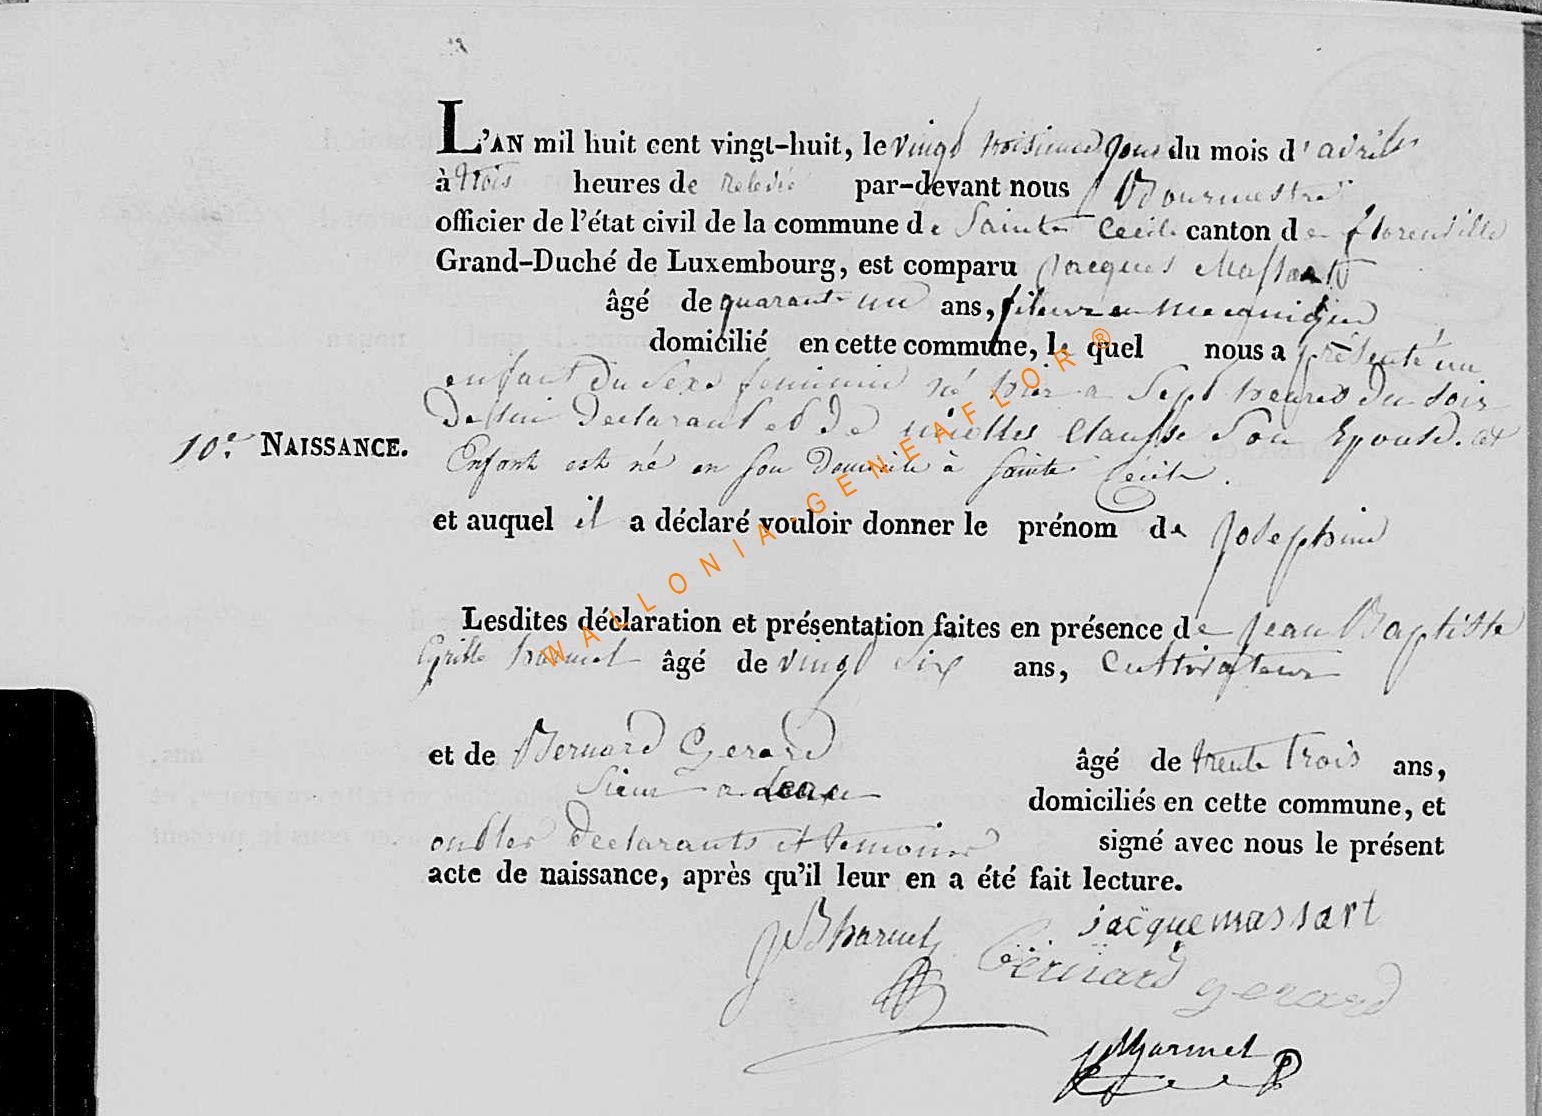 L'AN mil huit cent vingt-huit, le vingt troisieme jour du mois d'avril
à trois heures de relevée par-devant nous Bourmestre
officier de l'état civil de la commune de Sainte Cecile canton de florenville
Grand-Duché de Luxembourg, est comparu Jacques Massart
âgé de quarante un ans, fileur en mecanique
domicilié en cette commune, le quel nous a présenté un
enfant du sexe feminin né hier a sept heures du soir
De lui Declarant et de Clausse Son Epouse. cet
10e. NAISSANCE.
Enfant est né en son domicile à Sainte Cecile.
et auquel il a déclaré vouloir donner le prénom de Josephine
Lesdites déclaration et présentation faites en présence de Jean Baptiste
Cyrille harmel âgé de vingt six ans, Cultivateur
et de Bernard Gerard âgé de trente trois ans,
domiciliés en cette commune, et
ont les declarants et temoins signé avec nous le présent
acte de naissance, après qu'il leur en a été fait lecture.
JB harmel
jacque massart
bernard gerard
harmel
WALLONIA-GENEAFLOR®